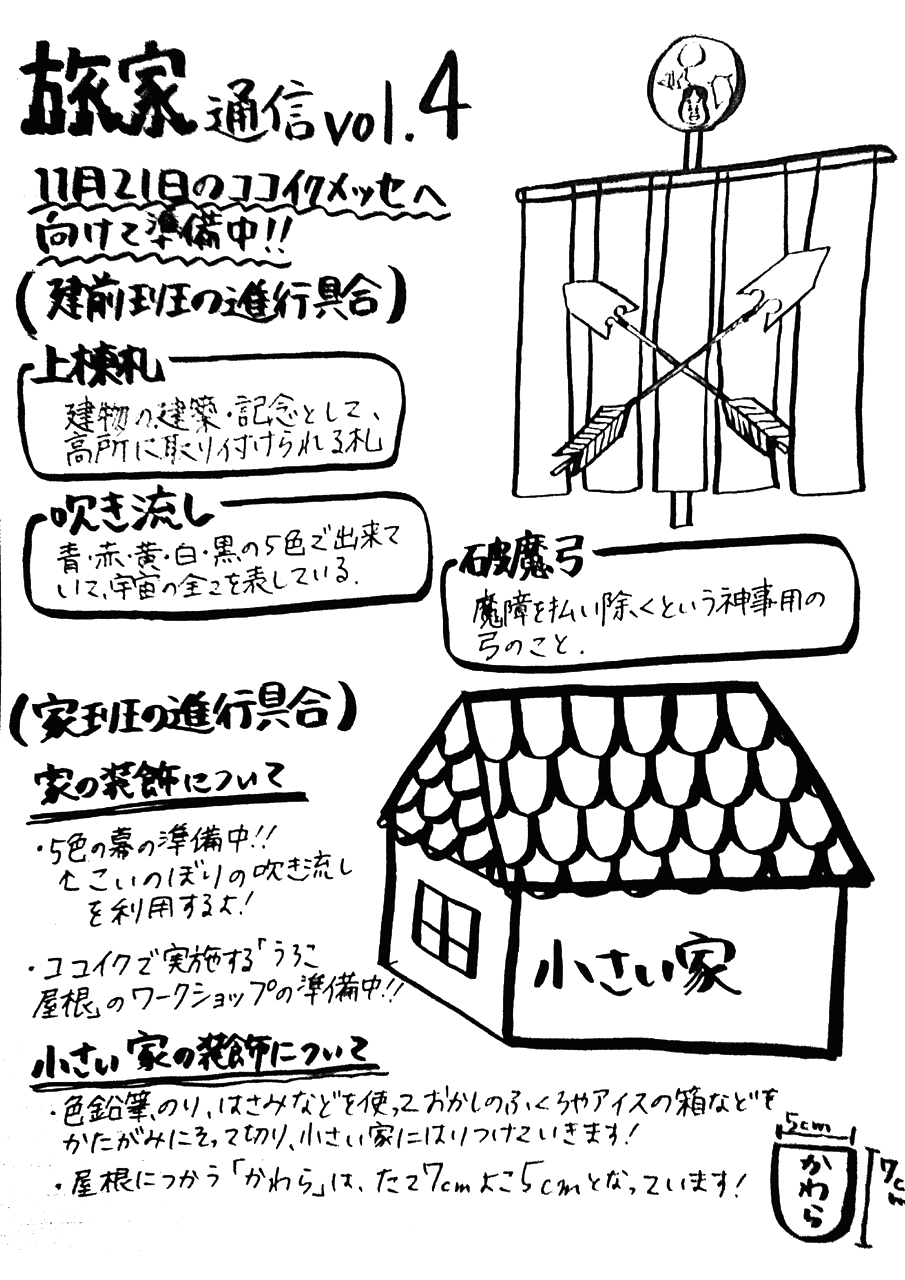 旅家通信vol.4
11月21日のココイクメッセへ
向けて準備中!!
(建前班の進行具合)
上棟札
建物の建築・記念として、
高所に取り付けられる札
吹き流し
青・赤・黄・白・黒の5色で出来て
いて、宇宙の全てを表している.
破魔弓
魔障を払い除くという神事用の
弓のこと.
(家班の進行具合)
家の装飾について
・5色の幕の準備中!!
↑こいのぼりの吹き流し
を利用するよ!
・ココイクで実施する「うろこ
屋根」のワークショップの準備中!!
小さい家
小さい家の装飾について
・色鉛筆、のり、はさみなどを使っておかしのふくろやアイスの箱などを
かたがみにそって切り、小さい家にはりつけていきます!
・屋根につかう「かわら」は、たて7cmよこ5cmとなっています!
5cm
かわら
7cm